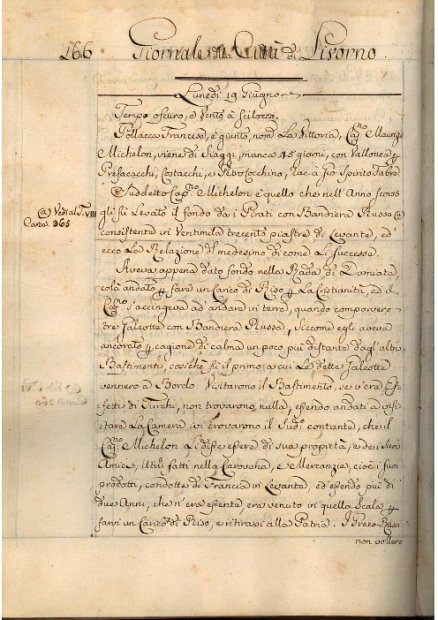 166 Giornal della Città di Livorno.
Lunedì 19 Giugno
Tempo oscuro, e Vento à scilocco.
Pollacca Francese, è giunto, nom.ª La Vittoria, Cap.no Maurizio
Michelon, viene di Saggi, manca 45 giorni, con Vallonea p
Presacacchi, Costacchi, e Petrococchino, rac.
Suddetto Cap.no Michelon è quello che nell' Anno scorso
gli fù Levato il fondo da i Pirati con Bandiera Russa (a
(a) Vedi al T. VIII
Carta 365
consistente in Ventimila trecento piastre di Levante, ed
ecco La Relazione del medesimo di come Li successe.
Aveva appena dato fondo nella Rada di Damiata,
colà andato p fare un Carico di Riso p La Cristianità, ed il
Cap.no s'accingeva ad' andare in terra, quando comparvero
tre Galeotte con Bandiera Russa, Siccome egli aveva
ancorato p cagione di calma un poco più distante dagl' altri
Bastimenti, cosichè fù il primo a cui Le dette Galeotte
vennero a Bordo. Visitarono il Bastimento, se v'era Ef-
fetti di Turchi, non trovarono nulla, essendo andati a visi-
tare La Camera, vi trovarono il Sud.º contante, che il
Cap.no Michelon Li disse essere di sua proprietà, e de i Suoi
Amici, Utili fatti nella Carovana, e Mercanzie, cioè i suoi
prodotti, condotte di Francia in Levante, ed essendo più di
due Anni, che n'era assente, era venuto in quella Scala p
farvi un Carico di Riso, e ritirarsi alla Patria. I Greco-Russi
non vollero